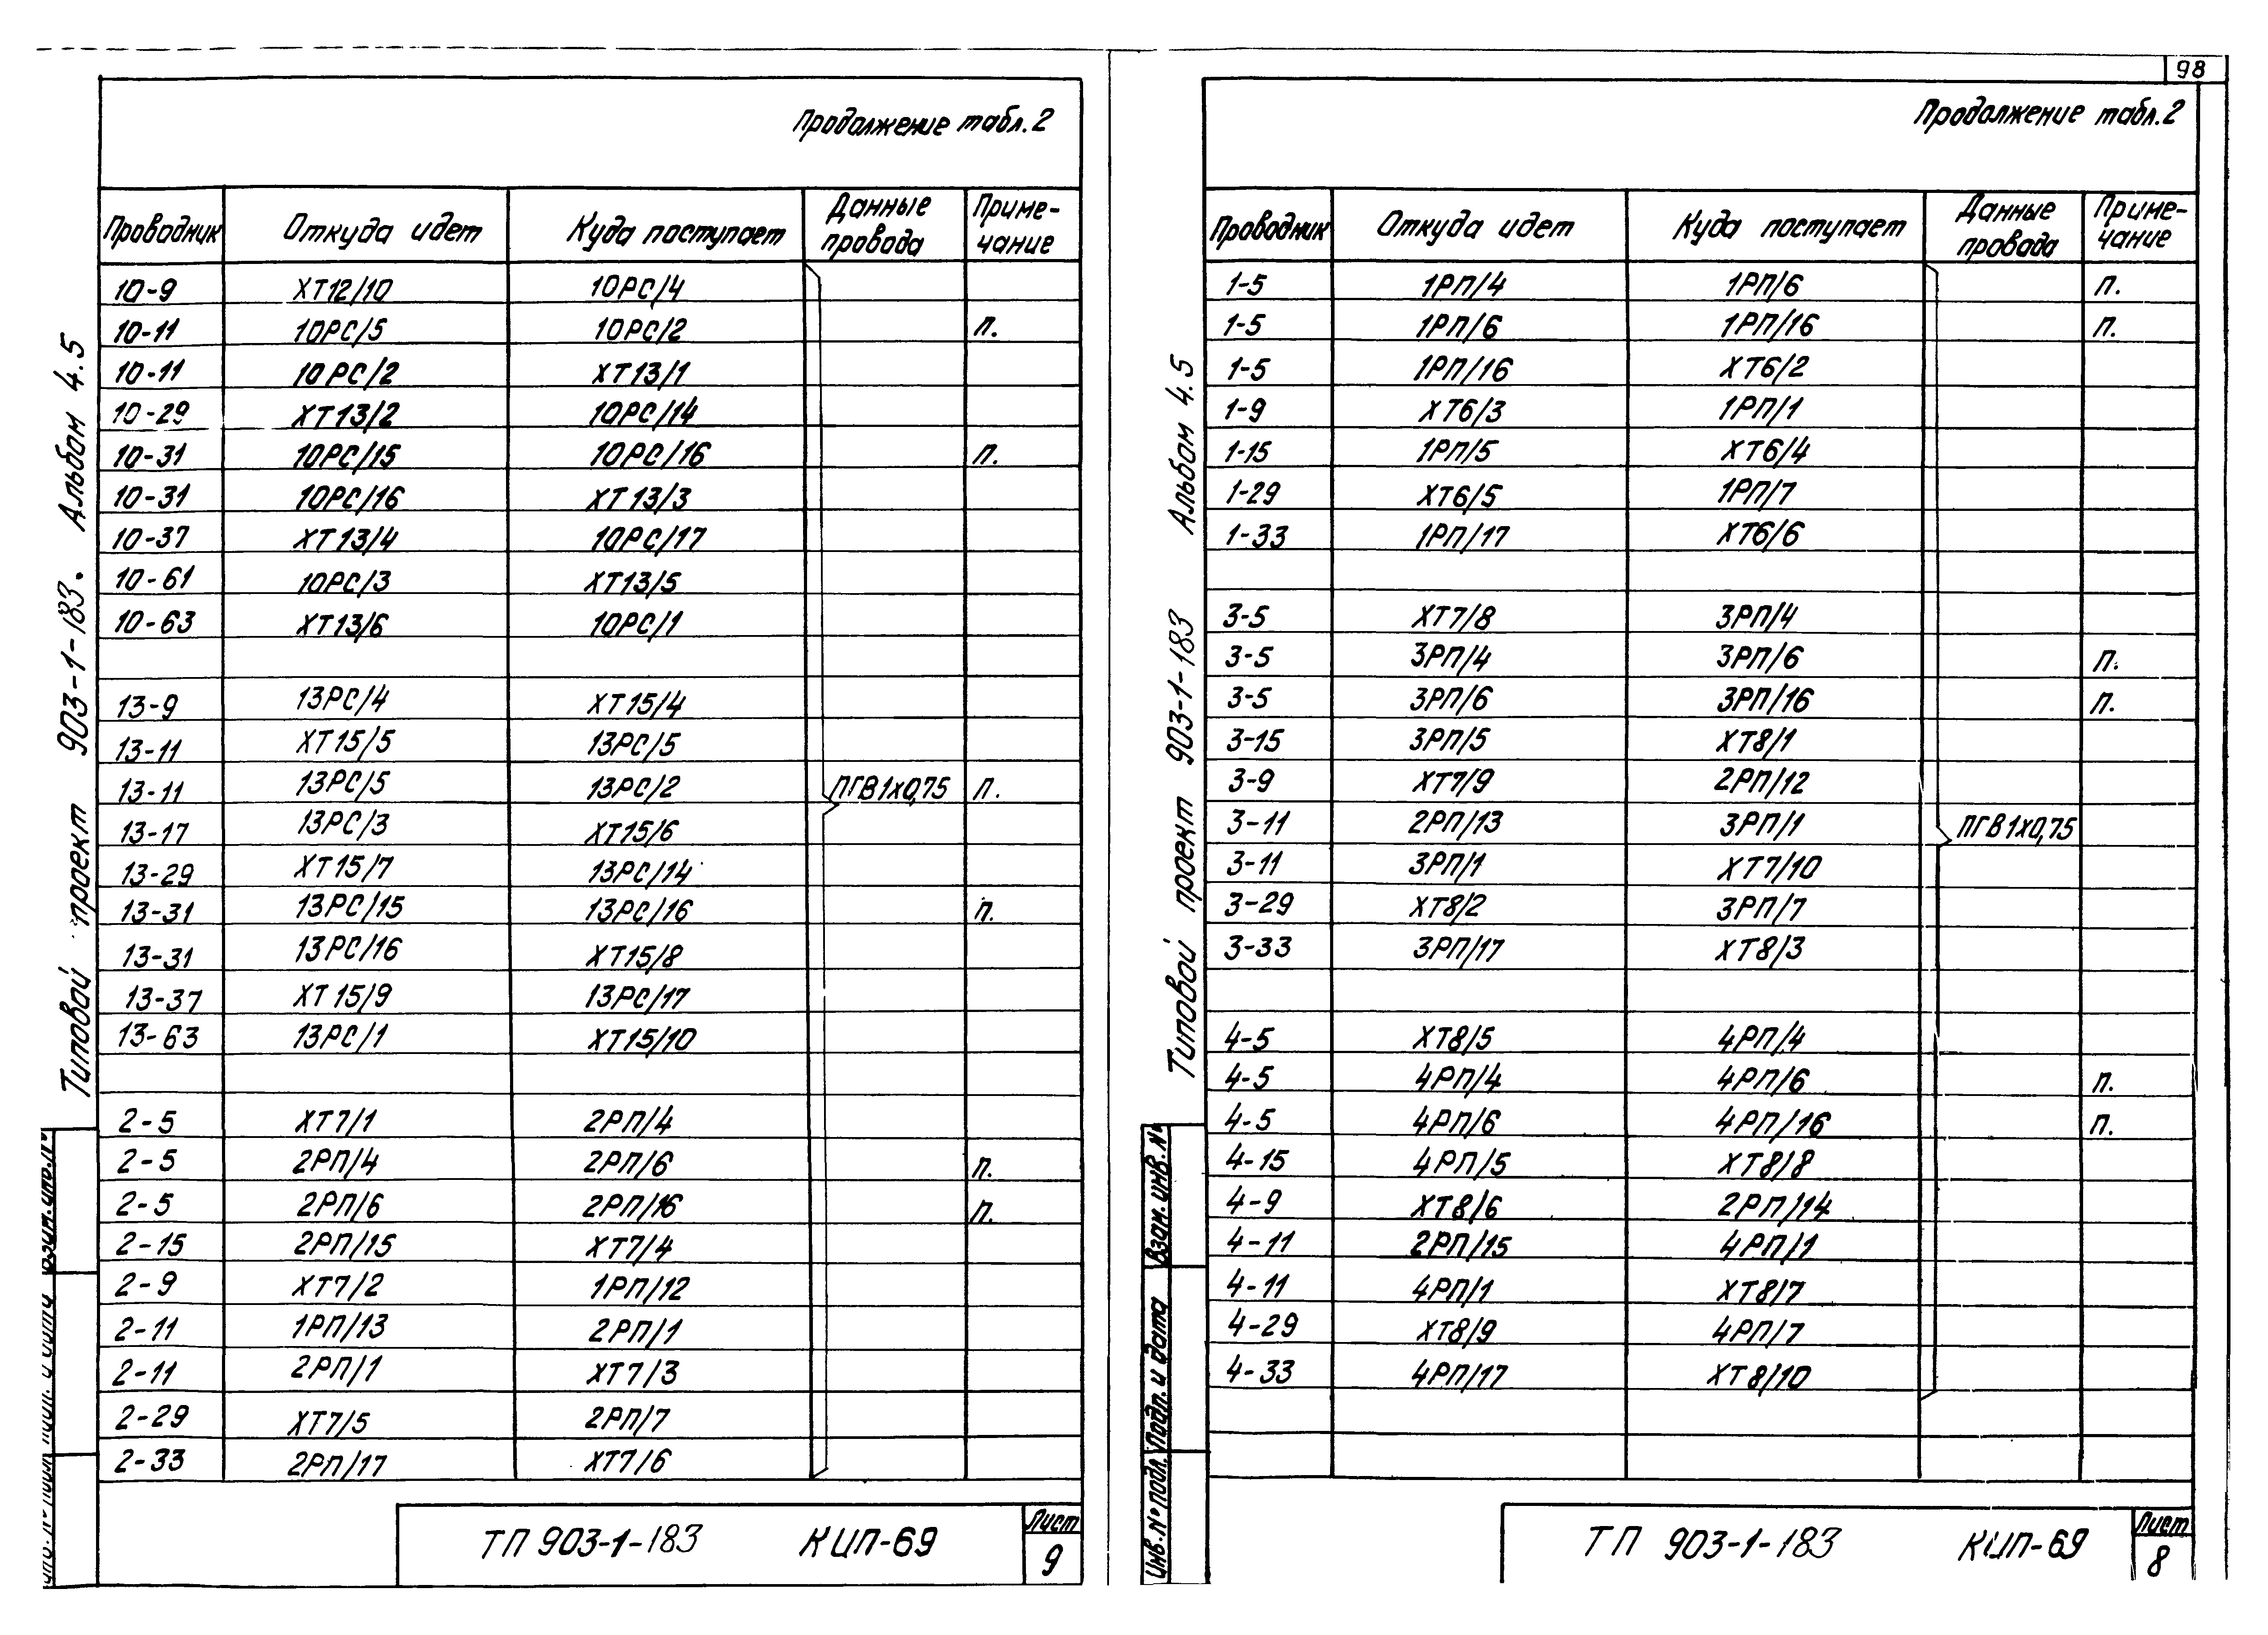 98
Продолжение табл.2
Проводник Откуда идет Куда поступает Данные провода Приме-чание
10-9 ХТ12/10 10РС/4
10-11 10РС/5 10РС/2 п.
10-11 10РС/2 ХТ13/1
10-29 ХТ13/2 10РС/14
10-31 10РС/15 10РС/16 п.
10-31 10РС/16 ХТ13/3
10-37 ХТ13/4 10РС/17
10-61 10РС/3 ХТ13/5
10-63 ХТ13/6 10РС/1
13-9 13РС/4 ХТ15/4
13-11 ХТ15/5 13РС/5
13-11 13РС/5 13РС/2 ПГВ1х0,75 п.
13-17 13РС/3 ХТ15/6
13-29 ХТ15/7 13РС/14
13-31 13РС/15 13РС/16 п.
13-31 13РС/16 ХТ15/8
13-37 ХТ15/9 13РС/17
13-63 13РС/1 ХТ15/10
2-5 ХТ7/1 2РП/4
2-5 2РП/4 2РП/6 п.
2-5 2РП/6 2РП/16 п.
2-15 2РП/15 ХТ7/4
2-9 ХТ7/2 1РП/12
2-11 1РП/13 2РП/1
2-11 2РП/1 ХТ7/3
2-29 ХТ7/5 2РП/7
2-33 2РП/17 ХТ7/6
ТП 903-1-183 КИП-69 Лист 9
Типовой проект 903-1-183. Альбом 4.5
Продолжение табл.2
Проводник Откуда идет Куда поступает Данные провода Приме-чание
1-5 1РП/4 1РП/6 п.
1-5 1РП/6 1РП/16 п.
1-5 1РП/16 ХТ6/2
1-9 ХТ6/3 1РП/1
1-15 1РП/5 ХТ6/4
1-29 ХТ6/5 1РП/7
1-33 1РП/17 ХТ6/6
3-5 ХТ7/8 3РП/4
3-5 3РП/4 3РП/6 п.
3-5 3РП/6 3РП/16 п.
3-15 3РП/5 ХТ8/1
3-9 ХТ7/9 2РП/12
3-11 2РП/13 3РП/1 ПГВ1х0,75
3-11 3РП/1 ХТ7/10
3-29 ХТ8/2 3РП/7
3-33 3РП/17 ХТ8/3
4-5 ХТ8/5 4РП/4
4-5 4РП/4 4РП/6 п.
4-5 4РП/6 4РП/16 п.
4-15 4РП/5 ХТ8/8
4-9 ХТ8/6 2РП/14
4-11 2РП/15 4РП/1
4-11 4РП/1 ХТ8/7
4-29 ХТ8/9 4РП/7
4-33 4РП/17 ХТ8/10
ТП 903-1-183 КИП-69 Лист 8
Типовой проект 903-1-183 Альбом 4.5
Инв.№ подл. Подп. и дата Взам. инв.№